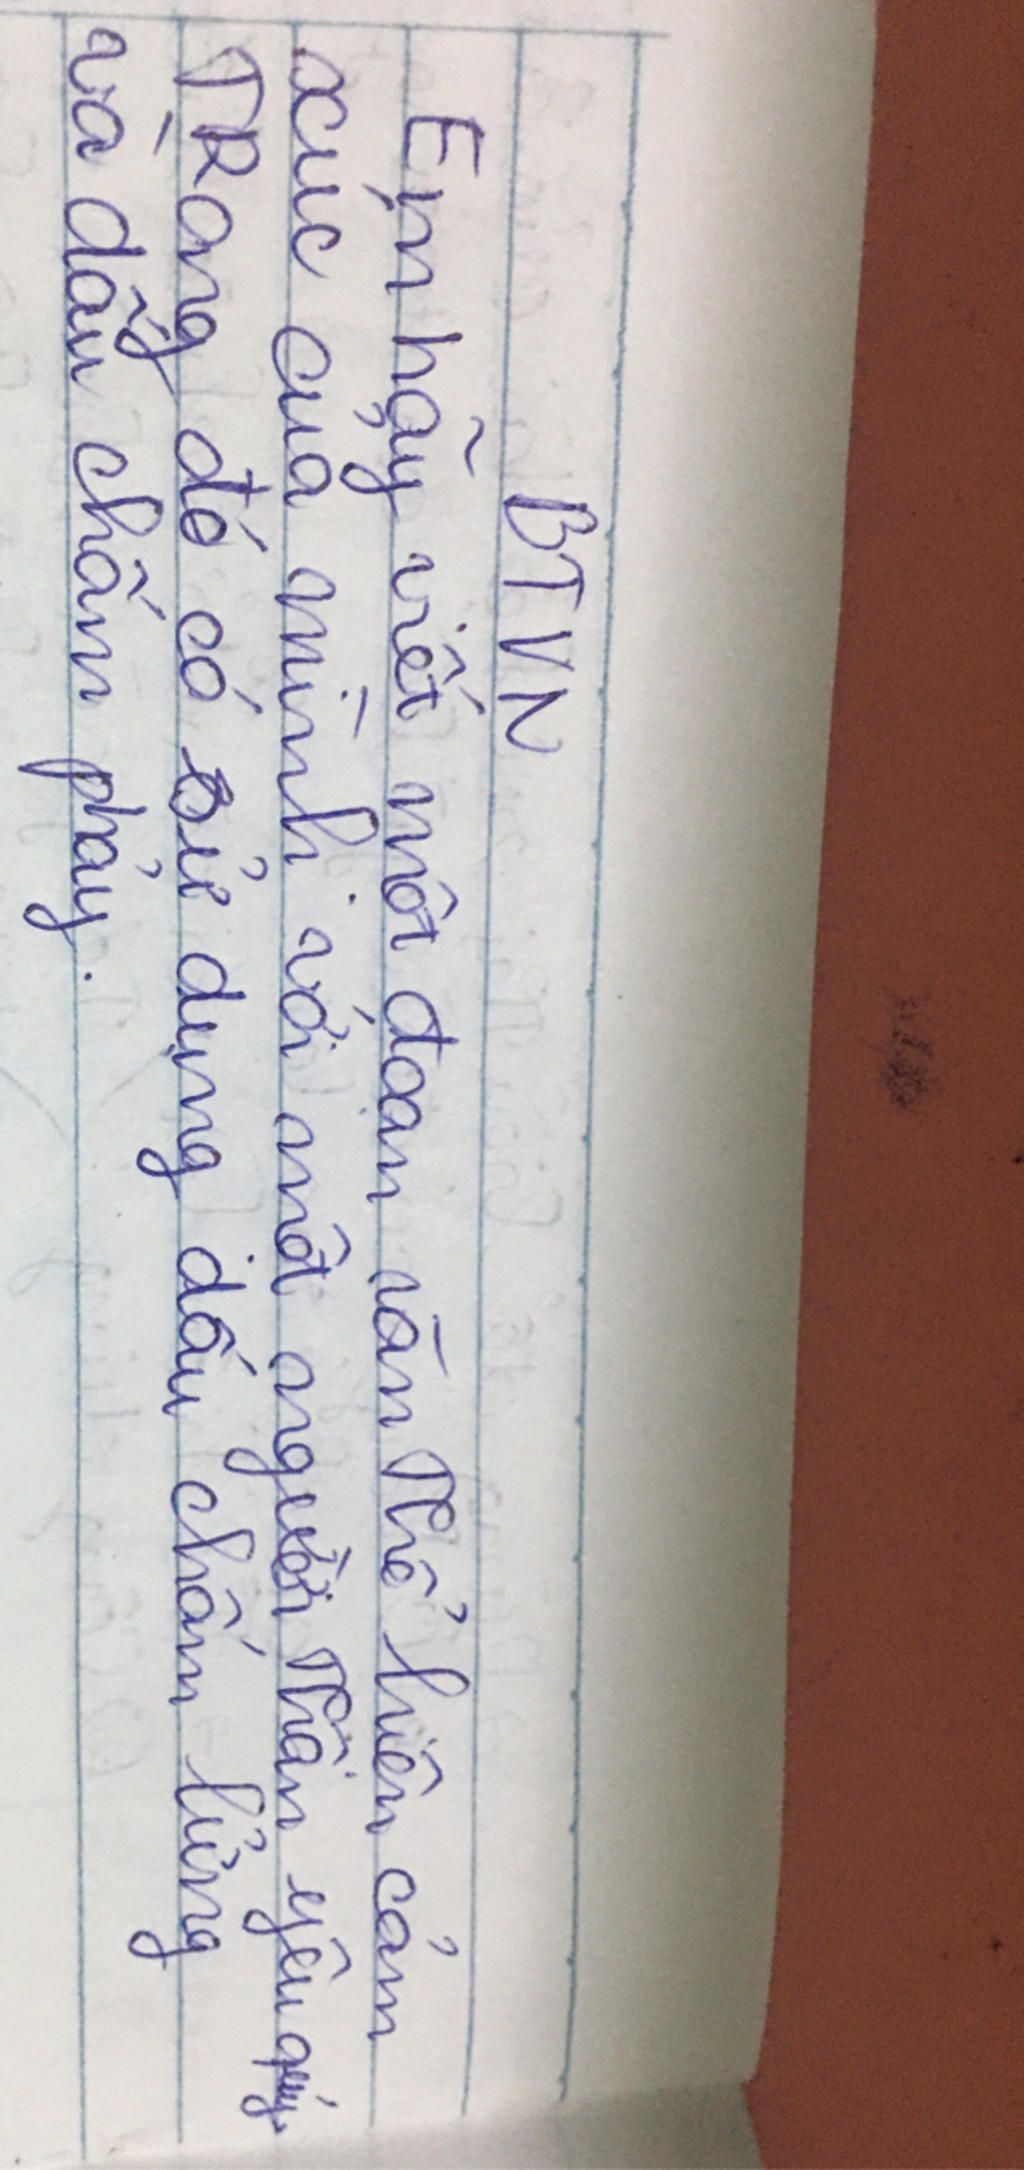 BTVN
Em hãy viết một đoạn văn thể hiện cảm
xúc của mình với một người thân yêu quý.
Trong đó có sử dụng dấu chấm lửng
và dấu chấm phẩy.